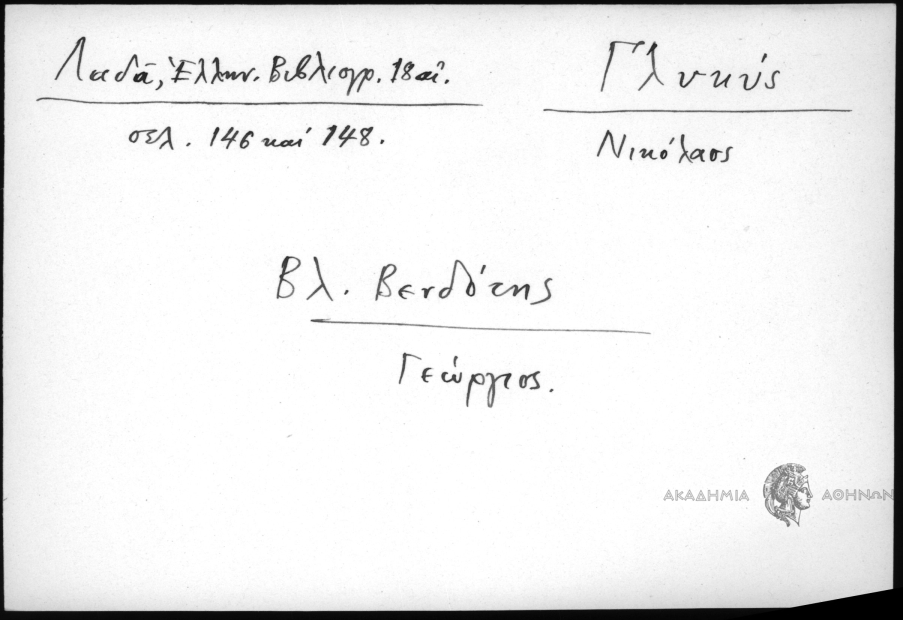 Λαδᾶ, Ἑλλην. Βιβλιογρ. 18 αἰ.
σελ. 146 καί 148.
Γλυκύς
Νικόλαος
Βλ. Βενδότης
Γεώργιος.
ΑΚΑΔΗΜΙΑ ΑΘΗΝΩΝ